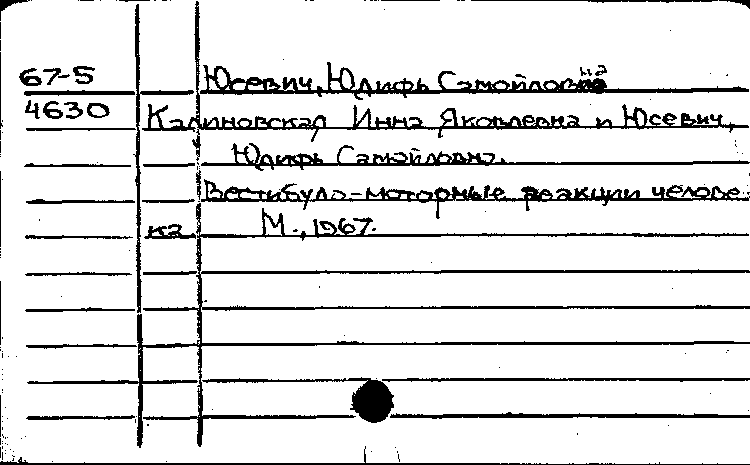 67-5 Юсевич, Юдифь Самойловна
4630 Калиновская Инна Яковлевна и Юсевич,
Юдифь Самойловна.
Вестибуло-моторные реакции челове
ка М., 1967.